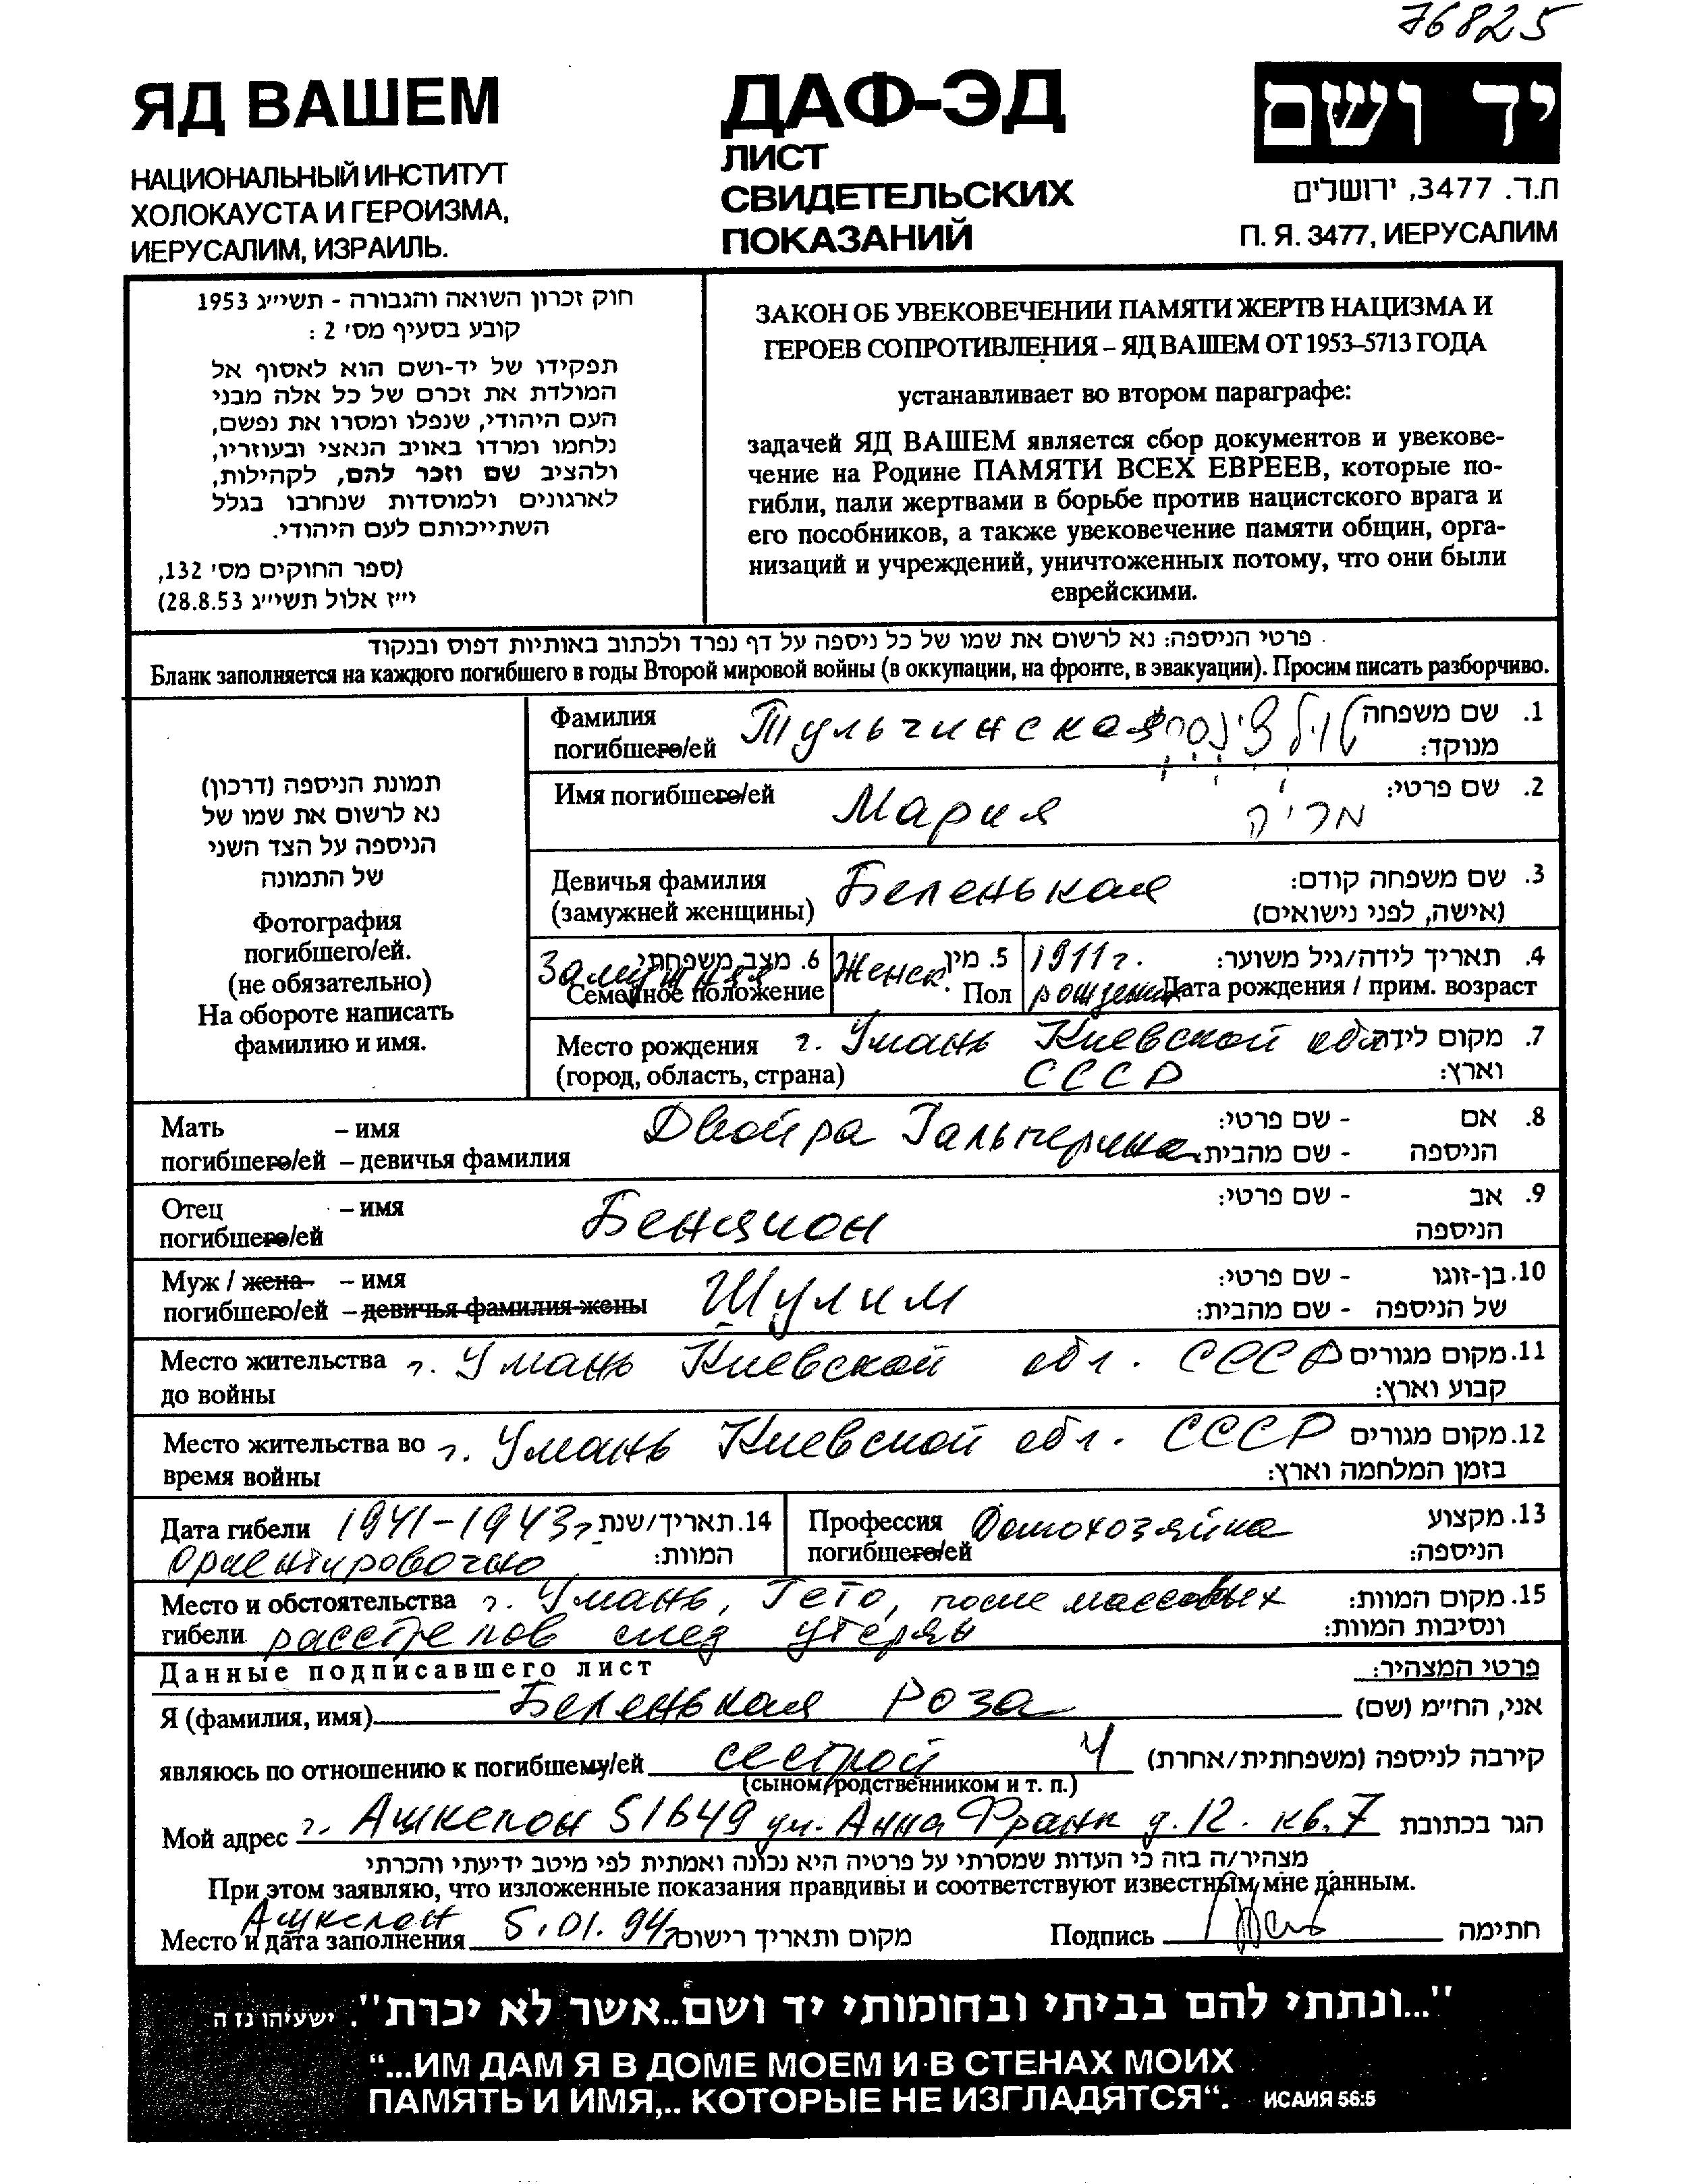 76825
ЯД ВАШЕМ
НАЦИОНАЛЬНЫЙ ИНСТИТУТ
ХОЛОКАУСТА И ГЕРОИЗМА,
ИЕРУСАЛИМ, ИЗРАИЛЬ.
ДАФ-ЭД
ЛИСТ
СВИДЕТЕЛЬСКИХ
ПОКАЗАНИЙ
יד ושם
ת.ד. 3477, ירושלים
П. Я. 3477, ИЕРУСАЛИМ
חוק זכרון השואה והגבורה - תשי״ג 1953
קובע בסעיף מס׳ 2 :
תפקידו של יד-ושם הוא לאסוף אל
המולדת את זכרם של כל אלה מבני
העם היהודי, שנפלו ומסרו את נפשם,
נלחמו ומרדו באויב הנאצי ובעוזריו,
ולהציב שם וזכר להם, לקהילות,
לארגונים ולמוסדות שנחרבו בגלל
השתייכותם לעם היהודי.
(ספר החוקים מס׳ 132,
י״ז אלול תשי״ג 28.8.53)
ЗАКОН ОБ УВЕКОВЕЧЕНИИ ПАМЯТИ ЖЕРТВ НАЦИЗМА И
ГЕРОЕВ СОПРОТИВЛЕНИЯ – ЯД ВАШЕМ ОТ 1953–5713 ГОДА
устанавливает во втором параграфе:
задачей ЯД ВАШЕМ является сбор документов и увекове-
чение на Родине ПАМЯТИ ВСЕХ ЕВРЕЕВ, которые по-
гибли, пали жертвами в борьбе против нацистского врага и
его пособников, а также увековечение памяти общин, орга-
низаций и учреждений, уничтоженных потому, что они были
еврейскими.
פרטי הניספה: נא לרשום את שמו של כל ניספה על דף נפרד ולכתוב באותיות דפוס ובנקוד
Бланк заполняется на каждого погибшего в годы Второй мировой войны (в оккупации, на фронте, в эвакуации). Просим писать разборчиво.
תמונת הניספה (דרכון)
נא לרשום את שמו של
הניספה על הצד השני
של התמונה
Фотография
погибшего/ей.
(не обязательно)
На обороте написать
фамилию и имя.
Фамилия Тульчинская טולצ׳ינסקיה 1. שם משפחה
погибшего/ей מנוקד:
Имя погибшего/ей Мария מריה 2. שם פרטי:
Девичья фамилия Беленькая 3. שם משפחה קודם:
(замужней женщины) (אישה, לפני נישואים)
Замужняя 6. מצב משפחתי Женск. 5. מין 1911 г. 4. תאריך לידה/גיל משוער:
Семейное положение Пол рождения Дата рождения / прим. возраст
Место рождения г. Умань Киевской обл 7. מקום לידה
(город, область, страна) СССР וארץ:
Мать – имя Двойра Гальперина - שם פרטי: 8. אם
погибшего/ей – девичья фамилия - שם מהבית: הניספה
Отец – имя Бенцион - שם פרטי: 9. אב
погибшего/ей הניספה
Муж / жена – имя Шулим - שם פרטי: 10. בן-זוגו
погибшего/ей – девичья фамилия жены - שם מהבית: של הניספה
Место жительства г. Умань Киевской обл. СССР 11. מקום מגורים
до войны קבוע וארץ:
Место жительства во г. Умань Киевской обл. СССР 12. מקום מגורים
время войны בזמן המלחמה וארץ:
Дата гибели 1941-1943г 14. תאריך/שנת Профессия Домохозяйка 13. מקצוע
Ориентировочно המוות: погибшего/ей הניספה:
Место и обстоятельства г. Умань, Гето, после массовых 15. מקום המוות:
гибели расстрелов след утерян ונסיבות המוות:
Данные подписавшего лист פרטי המצהיר:
Я (фамилия, имя) Беленькая Роза אני, הח״מ (שם)
являюсь по отношению к погибшему/ей сестрой Ч קירבה לניספה (משפחתית/אחרת)
(сыном, родственником и т. п.)
Мой адрес г. Ашкелон 51649 ул. Анна Франк д. 12. кв. 7 הגר בכתובת
מצהיר/ה בזה כי העדות שמסרתי על פרטיה היא נכונה ואמתית לפי מיטב ידיעתי והכרתי
При этом заявляю, что изложенные показания правдивы и соответствуют известным мне данным.
Ашкелон
Место и дата заполнения 5.01.94г מקום ותאריך רישום Подпись חתימה
"...ונתתי להם בביתי ובחומותי יד ושם..אשר לא יכרת". ישעיהו נו ה
“...ИМ ДАМ Я В ДОМЕ МОЕМ И В СТЕНАХ МОИХ
ПАМЯТЬ И ИМЯ,.. КОТОРЫЕ НЕ ИЗГЛАДЯТСЯ“. ИСАИЯ 56:5